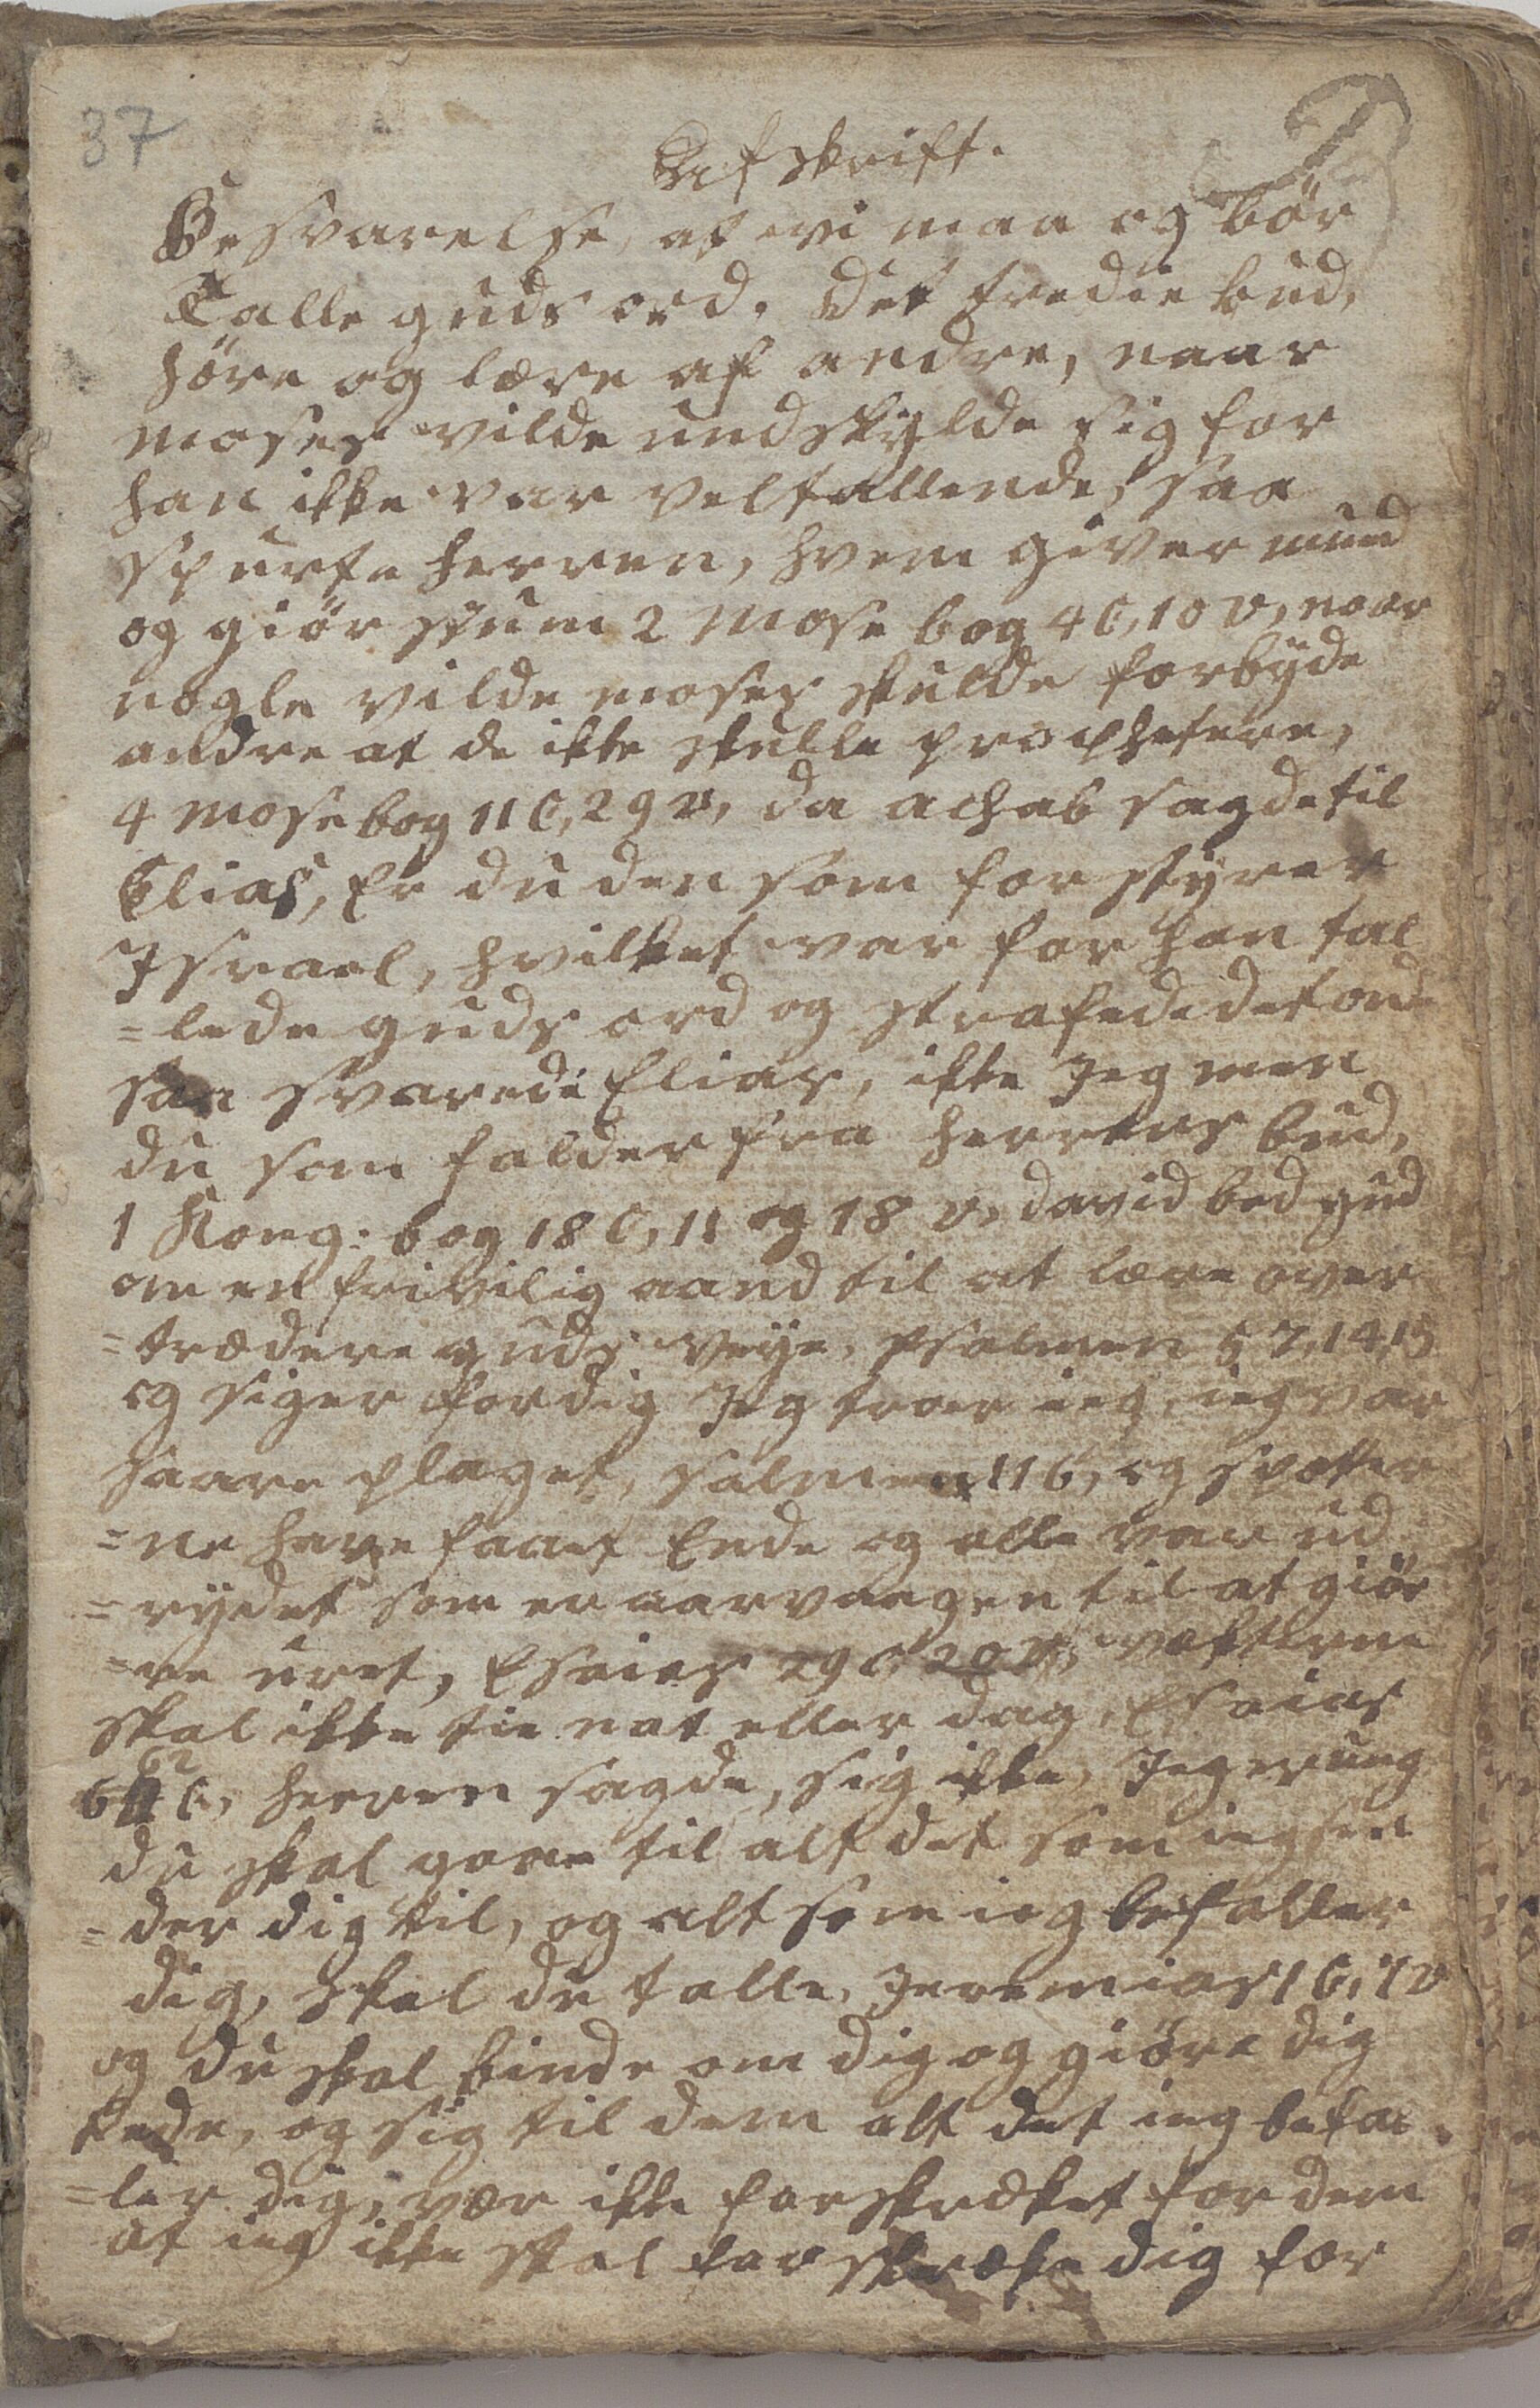 37
Afskrift.
Besvarelse, at wi maa og bör
Talle guds ord. det tredie bud,
höre og lære af andre, naar
moses vilde undskylde sig for
han ikke var veltallende, saa
spurte herren, hvem giver mund
og giör stum 2 Mose bog 4 C, 10 v, naar
nogle vilde moses skulde forbyde
andre at de ikke skulle prophetere,
4 Mosebog 11 C, 29 v, da achab sagde til
Elias, Er du den som forstyrer
Israel, hvilket var for han tal
=lede guds ord og strafede det onde
saa svarede Elias, ikke Jeg men
du som falder fra herrens bud,
1 Kong: bog 18 C, 11 og 18 v, david bad gud
om en frivilig aand til at lære over
=trædere guds veye, psalmen 57, 14, 15
og siger fordig Jeg troer ieg, ieg var
haare plaget, salmen 116, og spotter
=ne have faaet Ende og alle vare ud
=rydet som er aarvaagen til at giör
=re uret, Esaias 29 C 20 v, vækterne
skal ikke tie nat eller dag, Esaias
62 C, herren sagde, sig ikke, Jeg er ung
du skal gaae til alt det som ieg sen
=der dig til, og alt som ieg befaller
dig, skal du talle, Jeremias 1 C, 7 v
og du skal binde om dig og giöre dig
rede, og sig til dem alt det ieg befa
=ler dig, vær ikke forskrækket for dem
at ieg ikke skal forskrække dig for